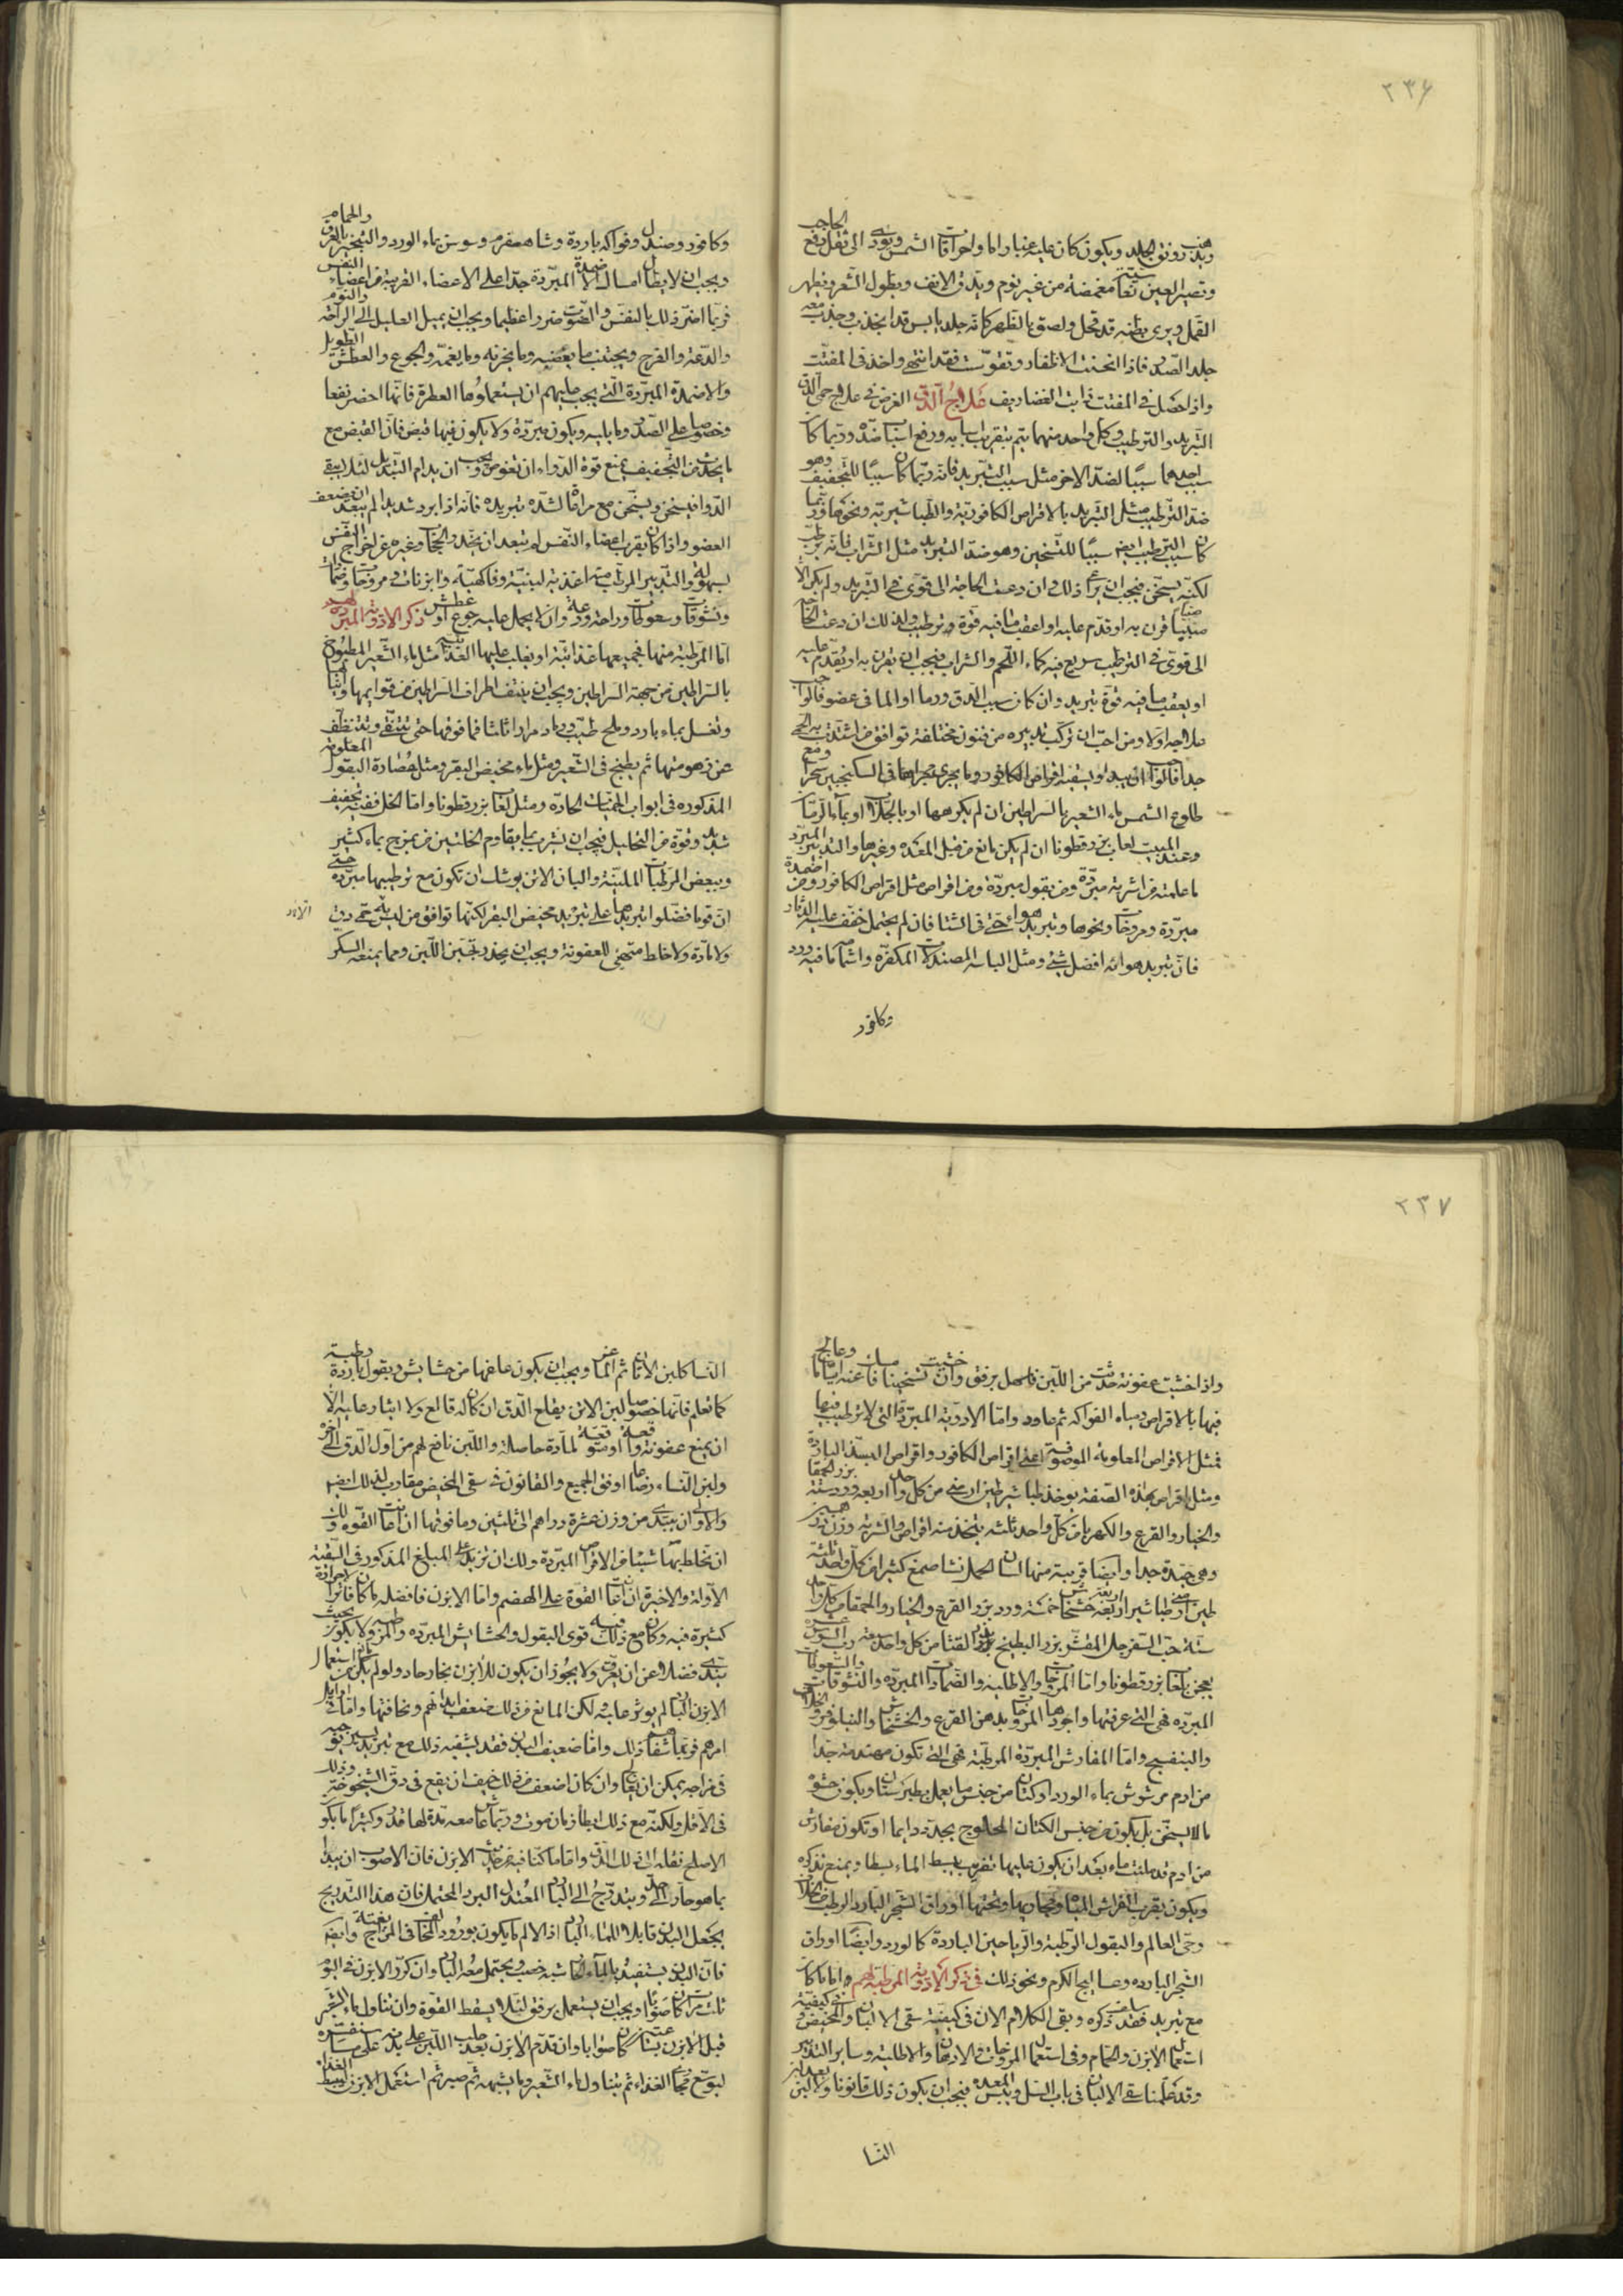 ٢٣۶
ويذهب رونق الجلد ويكون كان عليه غبارا ما واحراقات الشمس ويؤدى الى ثقل رفع الحاجب
وتصير العين معا مغمضة من غير نوم ويدق الانف ويطول الشعر ويظهر
القمل ويرى بطنه قد قحل ولصق بالظهر كانه جلد يابس قد انجذب وجذب معه
جلد الصدر فاذا انحنت الاظفار وتقوست فقد انتهى واخذ فى المفتت
واذا حصل فى المفتت ذابت الغضاريف علاج الدق الغرض فى علاج حمى الدق
التبريد والترطيب وكل واحد منهما يتم بتقريب اسبابه ورفع اسباب ضده وربما كان
سبب احدهما سببا لضد الاخر مثل سبب التبريد فانه ربما كان سببا للتجفيف وهو
ضد الترطيب مثل التبريد بالاقراص الكافورية والطباشيرية ونحوها وربما
كان سبب الترطيب ايضا سببا للتسخين وهو ضد التبريد مثل الشراب فانه يرطب
لكنه يسخن فيجب ان يراعى ذلك وان دعت الحاجة الى قوى فى التبريد ولم يكن الا
قرن به او قدم عليه او اعقب ما فيه قوة وترطيب ولذلك ان دعت الحاجة
الى قوى فى الترطيب سريع فيه كماء اللحم والشراب فيجب ان يقرن به او يقدم عليه
او يعقب ما فيه قوة تبريد وان كان سبب الدق ورما او الما فى عضو فالواجب
علاجه اولا ومن احب ان تركب تدبيره من فنون مختلفة توافق من اشتدت به الحمى
جدا فالواجب ان يبدا ويسقيه اقراص الكافور وما يجرى مجراها فى السكنجبين سحرا ومع
طلوع الشمس ماء الشعير بالسراطين ان لم يكرهها او بالجلاب او بماء الرمان
وعند المبيت لعاب بزرقطونا ان لم يكن مانع من قبل المعدة وغيرها والتدبير المبرد
ما علمته من اشربة مبردة ومن بقول مبردة ومن اقراص مثل اقراص الكافور ومن اضمدة
مبردة ومروخات ونحوها وتبريد هواء حتى فى الشتا فان لم يحتمل خفف عليه الدثار
فان تبريد هوائه افضل شئ ومثل الباسه المصندلات المكفرة واشمامه ما فيه ورد
وكافور
وكافور وصندل وفواكه باردة وشاهسفرم وسوسن بماء الورد والتبخير بالعرق والحمام
ويجب ان لا يطال امساك الاضمدة المبردة جدا على الاعضاء القريبة من اعضاء النفس
فربما اضر ذلك بالنفس والصوت ضررا عظيما ويجب ان يميل العليل الى الراحة والنوم
والدعة والفرح ويجتنب ما يغضبه وما يحزنه وما يغمه والجوع والعطش الطويل
والاضمدة المبردة التى يجب عليهم ان يستعملوها العطرة فانها احضر نفعا
وخصوصا على الصدر وما يليه ويكون مبردة ولا يكون فيها قبض فان القبض مع
ما يحدث من التجفيف يمنع قوة الدواء ان تغوص ويجب ان يدام التبديل لئلا يبقى
الدوا فيسخن ويسخن مع مراعاة لشدة تبريده فانه اذا برد شديدا لم يبعد ان يضعف
العضو واذا كان بقرب اعضاء النفس لم يبعد ان يخدر الحجاب وغيره عن اخراج النفس
بسهولة والتدبير المرطب من اغذية لبنية وفاكهية وابزنات ومروخات وضمادات
ونشوقات وسعوطات وراحة ودعة وان لا يحمل عليه جوع او عطش ذكر الادوية المبردة لهم
اما المرطبة منها فجميعها غذائية او يغلب عليها الغذائية مثل ماء الشعير المطبوخ
بالسراطين من جهة السراطين ويجب ان ينتف اطراف السراطين من قوايمها وانيابها
وتغسل بماء بارد وملح طيب ورماد مرارا ثلثا فما فوقها حتى تتنقى وتتنظف
عن زهومتها ثم يطبخ فى الشعير ومثل ماء مخيض البقر ومثل عصارة البقول المعلومة
المذكورة فى ابواب الحميات الحادة ومثل لعاب بزرقطونا واما الخل ففيه تجفيف
شديد وقوة من التحليل فيجب ان يشرب بما يقاوم الخلتين من يمزج بماء كثير
وببعض المرطبات الملينة والبان الاتن يوشك ان تكون مع ترطيبها مبردة حتى
ان قوما فضلوا تبريدها على تبريد مخيض البقر لكنها توافق من ليس به حمى دق
ولا مادة ولا خلط متهيئ للعفونة ويجب ان يحذر تجبن اللبن ومما يمنعه السكر
٢٣٧
واذا خشيت عفونة حدثت من اللبن فاسهل برفق وان خشيت تسخينا فامسك عنه اياما وعالج
فيها بالاقراص ومياه الفواكه ثم عاود واما الادوية المبردة التى لا ترطيب فيها
فمثل الاقراص المعلومة الموصوفة اعنى اقراص الكافور واقراص البسد الباردة
ومثل اقراص بهذه الصفة يوخذ طباشير طين ارمنى من كل واحد اربعة ورد ستة بزر الحمقا
والخيار والقرع والكهربا من كل واحد ثلثة يتخذ منه اقراص والشربة وزن درهمين
وهى جيدة جدا وايضا قريبة منها لسان الحمل نشا صمغ كثيرا من كل واحد ثلثة
طين ارمنى طباشير اربعة خشخاش خمسة ورد بزر القرع والخيار والحمقا من كل واحد
ستة حب السفرجل المقشر بزر البطيخ بزر القثا من كل واحد سبعة رب السوس
يعجن بلعاب بزرقطونا واما المروخات والاطلية والضمادات المبردة والنشوقات والسعوطات
المبردة فهى التى عرفتها واجودها المروخات بدهن القرع والخشخاش والنيلوفر والخلاف
والبنفسج واما المفارش المبردة المرطبة فهى التى تكون مهندمة جدا
من ادم مرشوش بماء الورد او كتان من جنس ما يعمل بطبرستان ويكون حشوه
ما لا يسخن بل يكون من جنس الكتان المحلوج يجدد دايما او تكون مفارش
من ادم قد ملئت ماء بعد ان يكون عليها تضريب يبسط الماء بسطا ويمنع تدكره
ويكون بقرب الفراش المياه ومجاريها وتحتها اوراق الشجر البارد الرطب كالخلاف
وحى العالم والبقول الرطبة والرياحين الباردة كالورد وايضا اوراق
الشجر الباردة وعساليج الكرم ونحو ذلك فى ذكر الادوية المرطبة لهم اما ما كان
مع تبريد فقد سلف ذكره وبقى الكلام الان فى كيفية سقى الالبان والمخيض وفى كيفية
استعمال الابزن والحمام وفى استعمال المروخات والادهان والاطلية وساير التدبير
وقد علمنا سقى الالبان فى باب السل ويبس المعدة فيجب ان يكون ذلك قانونا ولا لبن بعد لبن
النسا
النسا كلبن الاتان ثم الماعز ويجب ان يكون علفها من حشايش وبقول باردة رطبة
كما تعلم فانها خصوصا لبن الاتن يقلع الدق ان كان له قالع ولا ايثار عليه الا
ان يمنع عفونة واقعة او متوقعة لمادة حاصلة واللبن نافع لهم من اول الدق الى اخره
ولبن النساء رضاعا اوفق الجميع والقانون فى سقى المخيض مقارب لذلك ايضا
والاولى ان يبتدى من وزن عشرة دراهم الى ثلثين وما فوقها ان اعانت القوة ولك
ان تخلط بها شيئا من الاقراص المبردة ولك ان تزيد على المبلغ المذكور فى السقية
الاولة والاخيرة ان اعانت القوة على الهضم واما الابزن فافضله ما كان فاترا لا حرارة
كثيرة فيه وكان مع ذلك فيه قوى البقول والحشايش المبردة والمرطبة ولا يكون بحيث
يندى فضلا عن ان يعرق ولا يجوز ان يكون للابزن بخار حار ولو لم يكن من استعمال
الابزن البارد لم يوثر عليه لكن المانع من ذلك ضعف ابدانهم ونحافتها واما فى اوايل
امرهم فربما شفاهم ذلك واما ضعيف البدن فقد يشفيه ذلك مع تبريد
فى مزاجه يمكن ان يعالج وان كان اضعف من ذلك خيف ان يقع فى دق الشيخوخة وذلك
فى الاقل ولكنه مع ذلك ابطأ زمان موت وربما عاش معه مدة لها قدر وكثيرا ما يكون
الاصلح نقله الى ذلك الدق واما ما كنا فيه من حديث الابزن فان الاصوب ان يبدا
بما هو حار الى حد ويتدرج الى البارد المعتدل البرد المحتمل فان هذا التدريج
يجعل البدن قابلا للماء البارد اذ الالم ما يكون بورود المخالف فى المزاج بغتة وايضا
فان البدن يستفيد بالماء الحار شبه خصب ويحتمل معه البارد وان كرر الابزن فى اليوم
ثلث مرات كان صوابا ويجب ان يستعمل برفق لئلا يسقط القوة وان تناول ماء الشعير
قبل الابزن بساعتين كان صوابا وان قدم الابزن بعد حلب اللبن على بدنه
ليوسع مجارى الغذاء ثم يتناول ماء الشعير وما يشبهه ثم صبر ثم استعمل الابزن ليبسط الغذاء